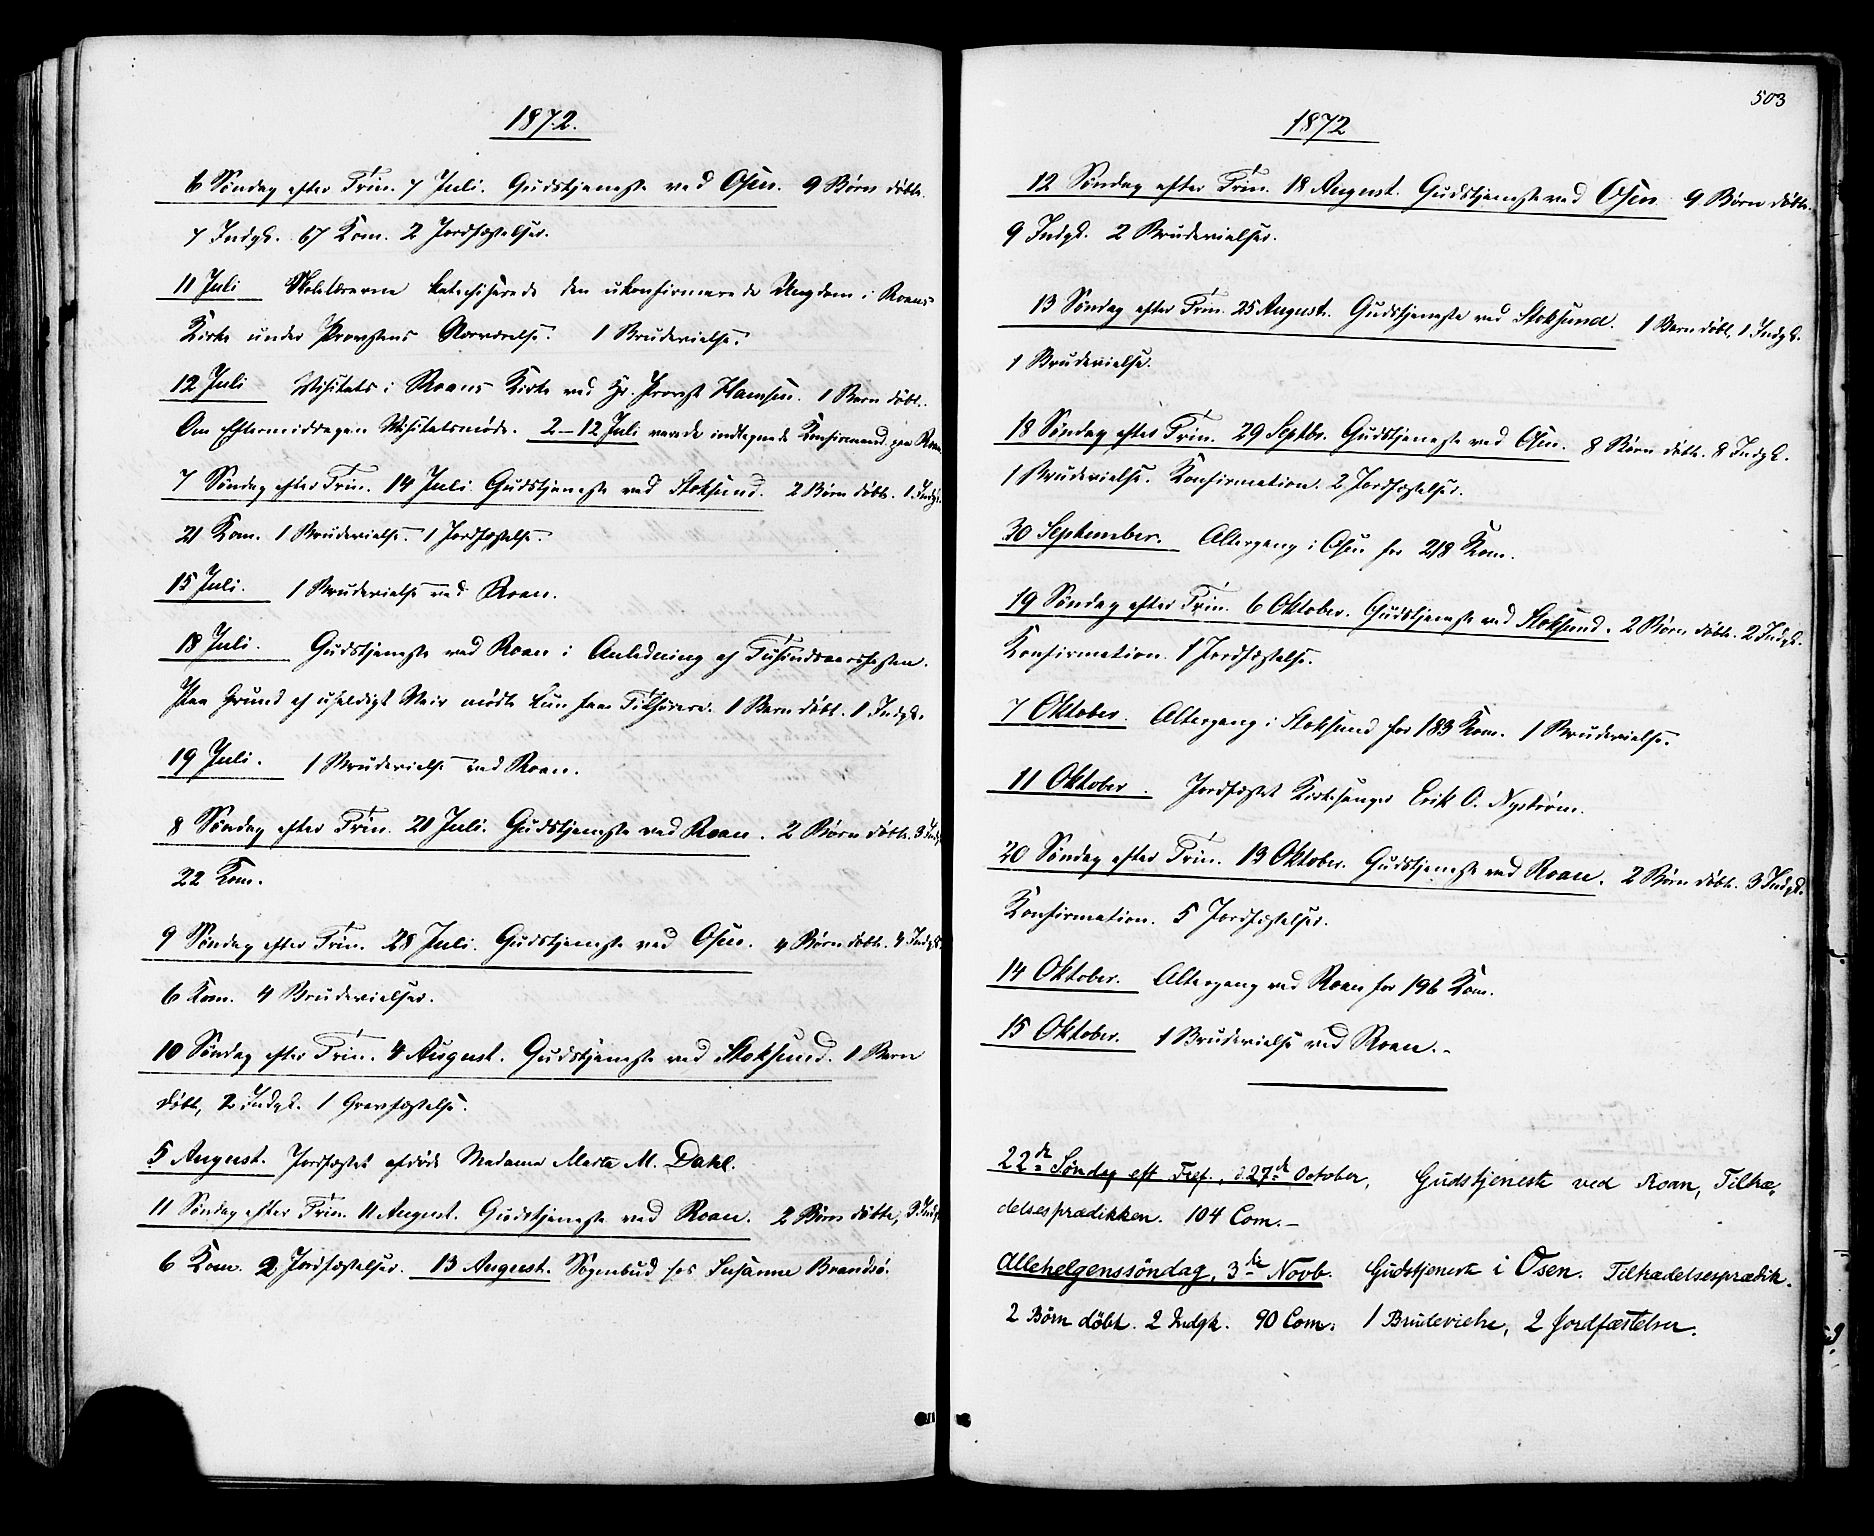 1872.
6 Søndag efter Trin. 7 Juli. Gudstjeneste ved Osen. 9 Børn døbte.
7 Indgk. 67 Kom. 2 Jordfæstelser.
11 Juli Skolelærerne katechiserede den ukonfirmerede Ungdom i Roans
Kirke under Provstens Nærværelse. 1 Brudevielse.
12 Juli Visitats i Roans Kirke ved Hr. Provst Hansen. 1 Barn døbt.
Om Eftermiddagen Visitatsmøde. 2-12 Juli indtegnede Konfirmand. paa Roan.
7 Søndag efter Trin. 14 Juli Gudstjeneste ved Stoksund. 2 Børn døbt. 1 Indgk.
21 Kom. 1 Brudevielse. 1 Jordfæstelse.
15 Juli. 1 Brudevielse ved Roan.
18 Juli. Gudstjeneste ved Roan i Anledning af Tusindaarsfesten.
Paa Grund af uheldigt Veir mødte kun faa Tilhørere. 1 Barn døbt. 1 Indgk.
19 Juli. 1 Brudevielse ved Roan.
8 Søndag efter Trin. 21 Juli. Gudstjeneste ved Roan. 2 Børn døbt. 3 Indgk.
22 Kom.
9 Søndag efter Trin. 28 Juli. Gudstjeneste ved Osen. 4 Børn døbt. 4 Indgk.
6 Kom. 4 Brudevielser.
10 Søndag efter Trin. 4 August. Gudstjeneste ved Stoksund. 1 Barn
døbt, 2 Indgk. 1 Gravfæstelse.
5 August. Jordfæstet afdøde Madame Marta M. Dahl.
11 Søndag efter Trin. 11 August. Gudstjeneste ved Roan. 2 Børn døbte, 3 Indgk.
6 Kom. 2 Jordfæstelser. 13 August. Sognebud hos Susanne Brandsø.
503
1872
12 Søndag efter Trin. 18 August. Gudstjeneste ved Osen. 9 Børn døbte.
9 Indgk. 2 Brudevielser.
13 Søndag efter Trin. 25 August. Gudstjeneste ved Stoksund. 1 Barn døbt, 1 Indgk.
1 Brudevielse.
18 Søndag efter Trin. 29 Septbr. Gudstjeneste ved Osen. 8 Børn døbt. 8 Indgk.
1 Brudevielse. Konfirmation. 2 Jordfæstelser.
30 September. Altergang i Osen for 218 Kom.
19 Søndag efter Trin. 6 Oktober. Gudstjeneste ved Stoksund. 2 Børn døbt. 2 Indgk.
Konfirmation. 1 Jordfæstelse.
7 Oktober. Altergang i Stoksund for 183 Kom. 1 Brudevielse.
11 Oktober. Jordfæstet Kirkesanger Erik O. Nystrøm.
20 Søndag efter Trin. 13 Oktober. Gudstjeneste ved Roan. 2 Børn døbt. 3 Indgk.
Konfirmation. 5 Jordfæstelser.
14 Oktober. Altergang ved Roan for 196 Kom.
15 Oktober. 1 Brudevielse ved Roan.-
22de Søndag eft Tref., d. 27de October, Gudstjeneste ved Roan, Tiltræ-
delsesprædikken. 104 Com.-
Allehelgenssöndag, 3die Novb. Gudstjeneste i Osen. Tiltrædelsesprædik.
2 Børn döbt. 2 Indgk. 90 Com. 1 Brudevielse, 2 Jordfæstelser.